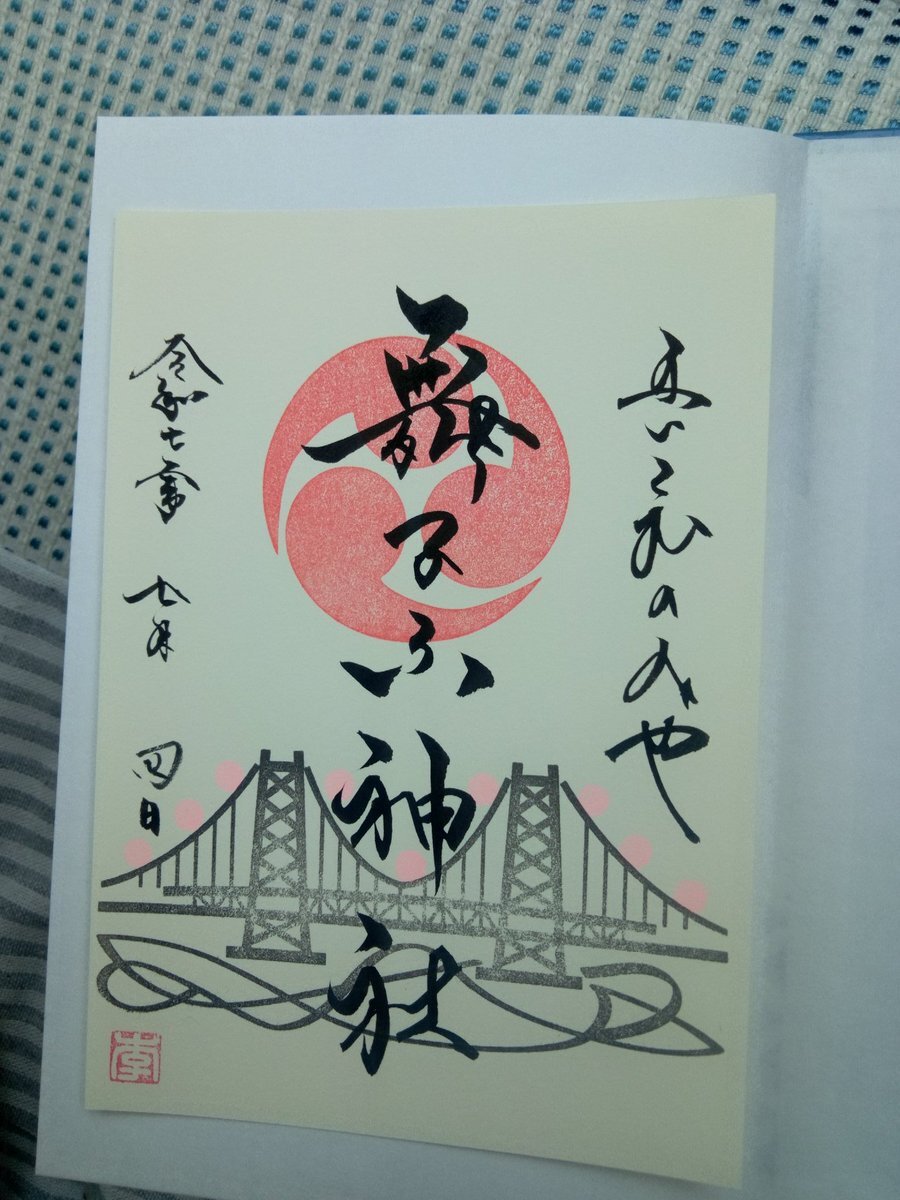 まいこむのみや
舞子六神社
令和七年 七月 四日